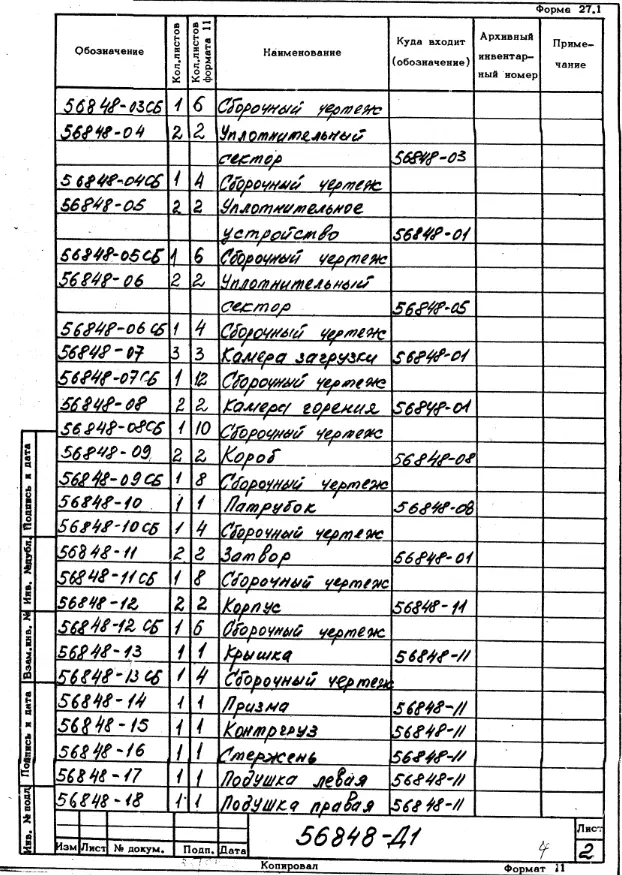 Форма 27.1
Обозначение Кол.листов Кол.листов формата 11 Наименование Куда входит (обозначение) Архивный инвентарный номер Примечание
56848-03СБ 1 6 Сборочный чертеж
56848-04 2 2 Уплотнительный
сектор 56848-03
56848-04СБ 1 4 Сборочный чертеж
56848-05 2 2 Уплотнительное
устройство 56848-01
56848-05СБ 1 6 Сборочный чертеж
56848-06 2 2 Уплотнительный
сектор 56848-05
56848-06СБ 1 4 Сборочный чертеж
56848-07 3 3 Камера загрузки 56848-01
56848-07СБ 1 12 Сборочный чертеж
56848-08 2 2 Камера горения 56848-01
56848-08СБ 1 10 Сборочный чертеж
56848-09 2 2 Короб 56848-08
56848-09СБ 1 8 Сборочный чертеж
56848-10 1 1 Патрубок 56848-08
56848-10СБ 1 4 Сборочный чертеж
56848-11 2 2 Затвор 56848-01
56848-11СБ 1 8 Сборочный чертеж
56848-12 2 2 Корпус 56848-11
56848-12СБ 1 6 Сборочный чертеж
56848-13 1 1 Крышка 56848-11
56848-13СБ 1 4 Сборочный чертеж
56848-14 1 1 Призма 56848-11
56848-15 1 1 Контргруз 56848-11
56848-16 1 1 Стержень 56848-11
56848-17 1 1 Подушка левая 56848-11
56848-18 1 1 Подушка правая 56848-11
Инв. № подл. Подпись и дата Взам.инв. № Инв. №дубл. Подпись и дата
56848-Д1 4 Лист 2
Изм Лист № докум. Подп. Дата
Копировал Формат 11